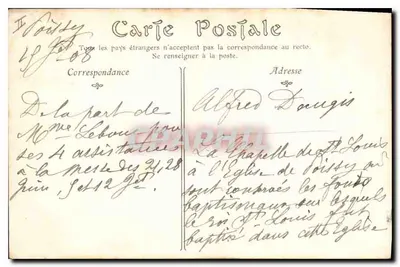 Poissy
15 Jet 08
Carte Postale
Tous les pays étrangers n'acceptent pas la correspondance au recto.
Se renseigner à la poste.
Correspondance
De la part de
Mme Lebou
ses 4 assistances
à la messe des 21, 28
Juin, 5 et 12 Jet
Adresse
Alfred Dougis
La Chapelle de St Louis
à l'Eglise de Poissy où
sont conservés les fonts
baptismaux sur lesquels
le roi St Louis fut
baptisé dans cette Eglise